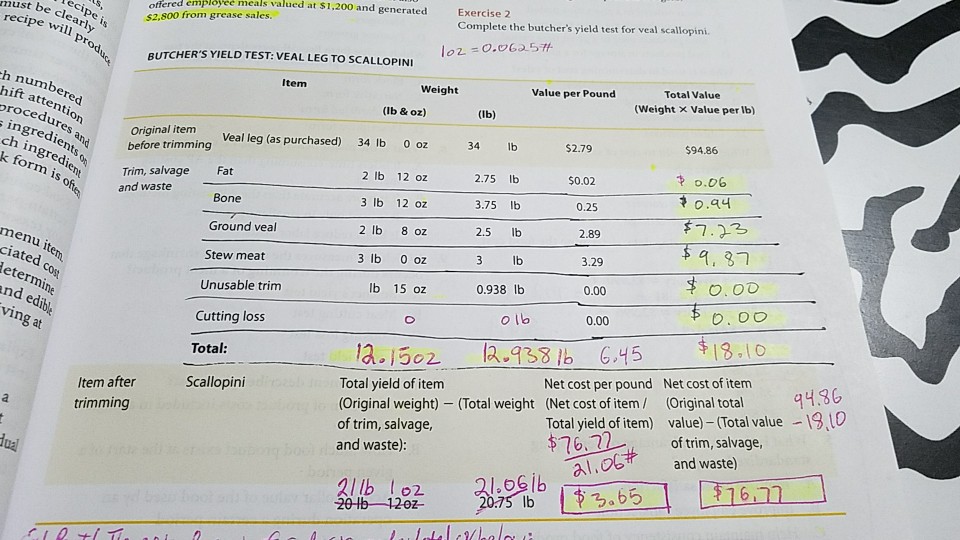 recipe is
must be clearly
recipe will produce
offered employee meals valued at $1,200 and generated
$2,800 from grease sales.
Exercise 2
Complete the butcher's yield test for veal scallopini.
1oz = 0.0625#
BUTCHER'S YIELD TEST: VEAL LEG TO SCALLOPINI
Item Weight Value per Pound Total Value
(lb & oz) (lb) (Weight X Value per lb)
Original item
before trimming Veal leg (as purchased) 34 lb 0 oz 34 lb $2.79 $94.86
Trim, salvage
and waste
Fat 2 lb 12 oz 2.75 lb $0.02 $ 0.06
Bone 3 lb 12 oz 3.75 lb 0.25 $ 0.94
Ground veal 2 lb 8 oz 2.5 lb 2.89 $7.23
Stew meat 3 lb 0 oz 3 lb 3.29 $9.87
Unusable trim lb 15 oz 0.938 lb 0.00 $ 0.00
Cutting loss 0 0 lb 0.00 $ 0.00
Total: 12.15oz 12.938 lb 6.45 $18.10
Item after
trimming
Scallopini
Total yield of item
(Original weight) − (Total weight
of trim, salvage,
and waste):
21 lb 1 oz 21.06 lb
20 lb 12 oz 20.75 lb
Net cost per pound
(Net cost of item /
Total yield of item)
$76.77
21.06#
$3.65
Net cost of item
(Original total
value) − (Total value
of trim, salvage,
and waste)
94.86
- 18.10
$76.77
h numbered
hift attention
procedures and
ingredients on
ch ingredient
k form is often
menu item
ciated cost
determine
nd edible
ving at
a
t
dual